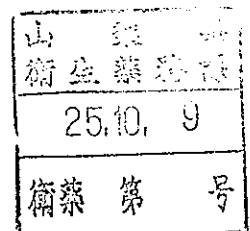 山梨県
衛生薬務課
25.10. 9
衛薬 第 号